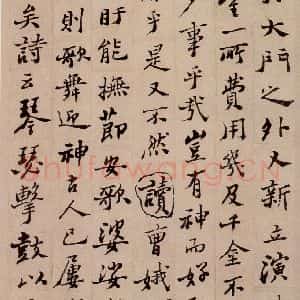 大門之外新立演
一所費用幾及千金不
事乎哉豈有神而好
乎是又不然讀曹娥
盱能撫節安歌婆娑
則歌舞迎神古人已屢
矣詩云琴瑟擊鼓以